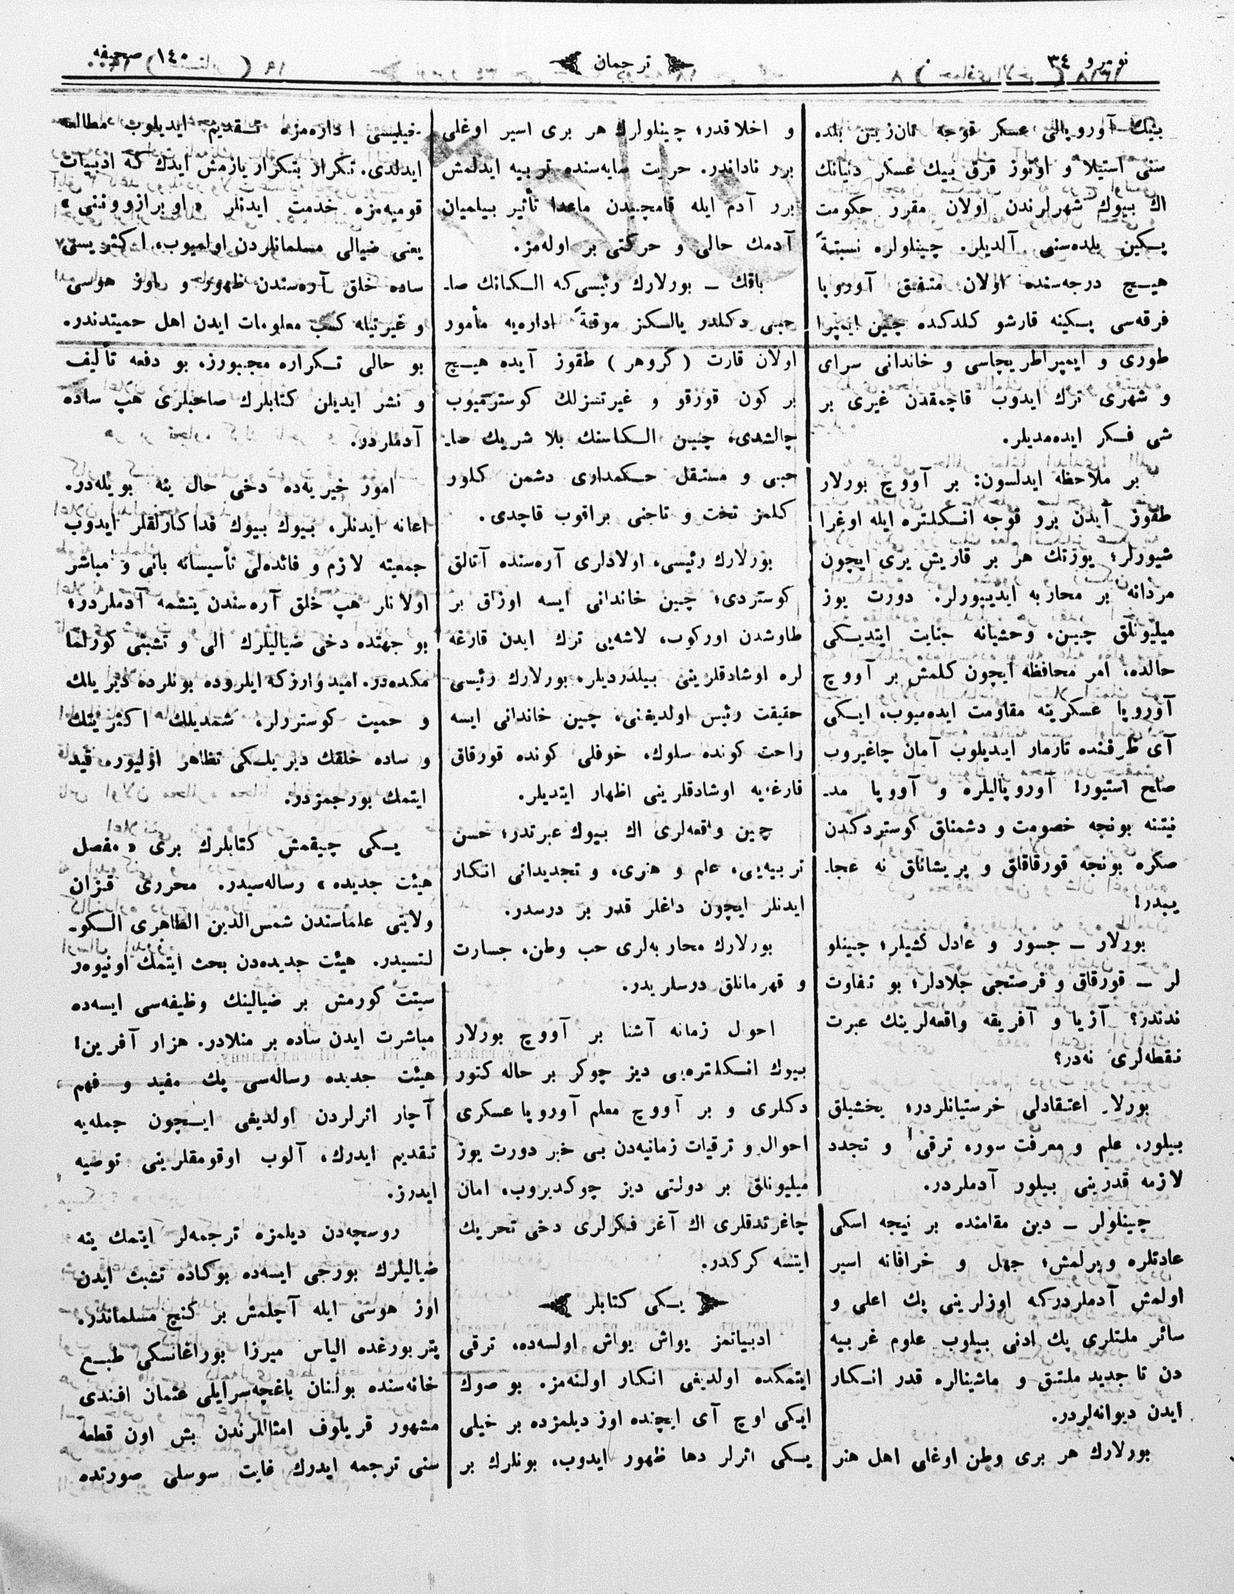 نومرو ٣٤
ترجمان
١٤٠ صحيفه
بيك آوروپالى عسكر قوجه تانزين بلده
سنى استيلا و اوتوز قرق بيك عسكر دنيانك
اك بيوك شهرلرندن اولان مقرر حكومت
پكين بلده‌سنى آلديلر. چينلولره نسبتةً
هيچ درجه‌سنده اولان متفق آوروپا
فرقه‌سى پكينه قارشو كلدكده چين ايمپرا
طورى و ايمپراطريچاسى و خاندانى سراى
و شهرى ترك ايدوب قاچمقدن غيرى بر
شى فكر ايده‌مديلر.
بر ملاحظه ايدلسون: بر آووچ بورلار
طقوز آيدن برو قوجه انكلتره ايله اوغرا
شيورلر؛ يوزنك هر بر قاريش يرى ايچون
مردانه بر محاربه ايديبورلر. دورت يوز
ميليونلق چين، وحشيانه جنايت ايتديكى
حالده، امر محافظه ايچون كلمش بر آووچ
آوروپا عسكرينه مقاومت ايده‌ميوب، ايكى
آى ظرفنده تارمار ايديلوب آمان چاغيروب
صلح استيور! آوروپاليلره و آوروپا مد-
نيتنه بونجه خصومت و دشمنلق كوستردكدن
صكره بونجه قورقاقلق و پريشانلق نه عجا-
يبدر!
بورلار ــ جسور و عادل كشيلر؛ چينلو
لر ــ قورقاق و فرصتجى جلادلر؛ بو تفاوت
نه‌دندر؟ آزيا و آفريقه واقعه‌لرينك عبرت
نقطه‌لرى نه‌در؟
بورلار اعتقادلى خرستيانلردر؛ يخشيلق
بيلور، علم و معرفت سوره ترقى و تجدد
لازمه قدرينى بيلور آدملردر.
چينلولر ــ دين مقامنده بر نيجه اسكى
عادتلره ويرلمش؛ جهل و خرافاته اسير
اولمش آدملردركه اوزلرينى پك اعلى و
سائر ملتلرى پك ادنى بيلوب علوم غربيه
دن تا جديد ملتق و ماشينالره قدر انكار
ايدن ديوانه‌لردر.
بورلارك هر برى وطن اوغلى اهل هنر
و اخلاقدر؛ چينلولرك هر برى اسير اوغلى
برر ناداندر. حريت سايه‌سنده تربيه ايدلمش
برر آدم ايله قامچيدن ماعدا تأثير بيلميان
آدمك حالى و حركتى بر اوله‌مز.
باقك ــ بورلارك رئيسى كه الكانك صا-
حبى دكلدر يالكز موقتةً اداره‌يه مأمور
اولان قارت (كروهر) طقوز آيده هيچ
بر كون قورقو و غيرتسزلك كوسترميوب
چالشدى، چين الكاسنك بلا شريك صا-
حبى و مستقل حكمدارى دشمن كلور
كلمز تخت و تاجنى براقوب قاچدى.
بورلارك رئيسى، اولادلرى آره‌سنده آتالق
كوستردى؛ چين خاندانى ايسه اوزاق بر
طاوشدن اوركوب، لاشه‌يى ترك ايدن قارغه
لره اوشادقلرينى بيلدرديلر. بورلارك رئيسى
حقيقت رئيس اولديغنى، چين خاندانى ايسه
راحت كونده سلوك، خوفلى كونده قورقاق
قارغه‌يه اوشادقلرينى اظهار ايتديلر.
چين واقعه‌لرى اك بيوك عبرتدر؛ حسن
تربيه‌يى، علم و هنرى، و تجديداتى انكار
ايدنلر ايچون داغلر قدر بر درسدر.
بورلارك محاربه‌لرى حب وطن، جسارت
و قهرمانلق درسلريدر.
احوال زمانه آشنا بر آووچ بورلار
بيوك انكلتره‌يى ديز چوكر بر حاله كتور
دكلرى و بر آووچ معلم آوروپا عسكرى
احوال و ترقيات زمانيه‌دن بى خبر دورت يوز
ميليونلق بر دولتى ديز چوكديروب، امان
چاغرتدقلرى اك آغر فكرلرى دخى تحريك
ايتسه كركدر.
يكى كتابلر
ادبياتمز يواش يواش اولسه‌ده، ترقى
ايتمكده اولديغى انكار اولنه‌مز. بو صوك
ايكى اوچ آى ايچنده اوز ديلمزده بر خيلى
يكى اثرلر دها ظهور ايدوب، بونلرك بر
خيليسى اداره‌مزه تقديم ايديلوب مطالعه
ايدلدى. تكرار بتكرار يازمش ايدك كه ادبيات
قوميه‌مزه خدمت ايدنلر «اوبرازووننى»
يعنى ضيالى مسلمانلردن اولميوب، اكثريستى
ساده خلق آره‌سندن ظهور و راوز هوسى
و غيرتيله كسب معلومات ايدن اهل حميتدندر.
بو حالى تكراره مجبورز. بو دفعه تأليف
و نشر ايديلن كتابلرك صاحبلرى هپ ساده
آدملردر.
امور خيريه‌ده دخى حال ينه بويله‌در.
اعانه ايدنلر، بيوك بيوك فداكارلقلر ايدوب
جمعيته لازم و فائده‌لى تأسيساته بانى و مباشر
اولانلر هپ خلق آره‌سندن يتشمه آدملردر؛
بو جهتده دخى ضياليلرك الى و تشبثى كورلما
مكده‌در. اميد واركه ايلروده بونلرده ديريلك
و حميت كوسترولر، شمديلك اكثريتك
و ساده خلقك ديريلكى تظاهر اوليور، قيد
ايتمك بورجمزدر.
يكى چيقمش كتابلرك برى «مفصل
هيئت جديده» رساله‌سيدر. محررى قزان
ولايتى علماسندن شمس‌الدين الطاهرى الكو-
لتسيدر. هيئت جديده‌دن بحث ايتمك اونيوه‌ر
سيتت كورمش بر ضيالينك وظيفه‌سى ايسه‌ده
مباشرت ايدن ساده بر منلادر. هزار آفرين!
هيئت جديده رساله‌سى پك مفيد و فهم
آچار اثرلردن اولديغى ايچون جمله‌يه
تقديم ايدرك، آلوب اوقومقلرينى توصيه
ايدرز.
روسچه‌دن ديلمزه ترجمه‌لر ايتمك ينه
ضياليلرك بورجى ايسه‌ده بوكاده تشبث ايدن
اوز هوسى ايله آچلمش بر كنج مسلماندر.
پتربورغده الياس ميرزا بوراغانسكى طبع
خانه‌سنده بولنان باغچه‌سرايلى عثمان افندى
مشهور قريلوف امثاللرندن بش اون قطعه
سنى ترجمه ايدرك غايت سوسلى صورتده